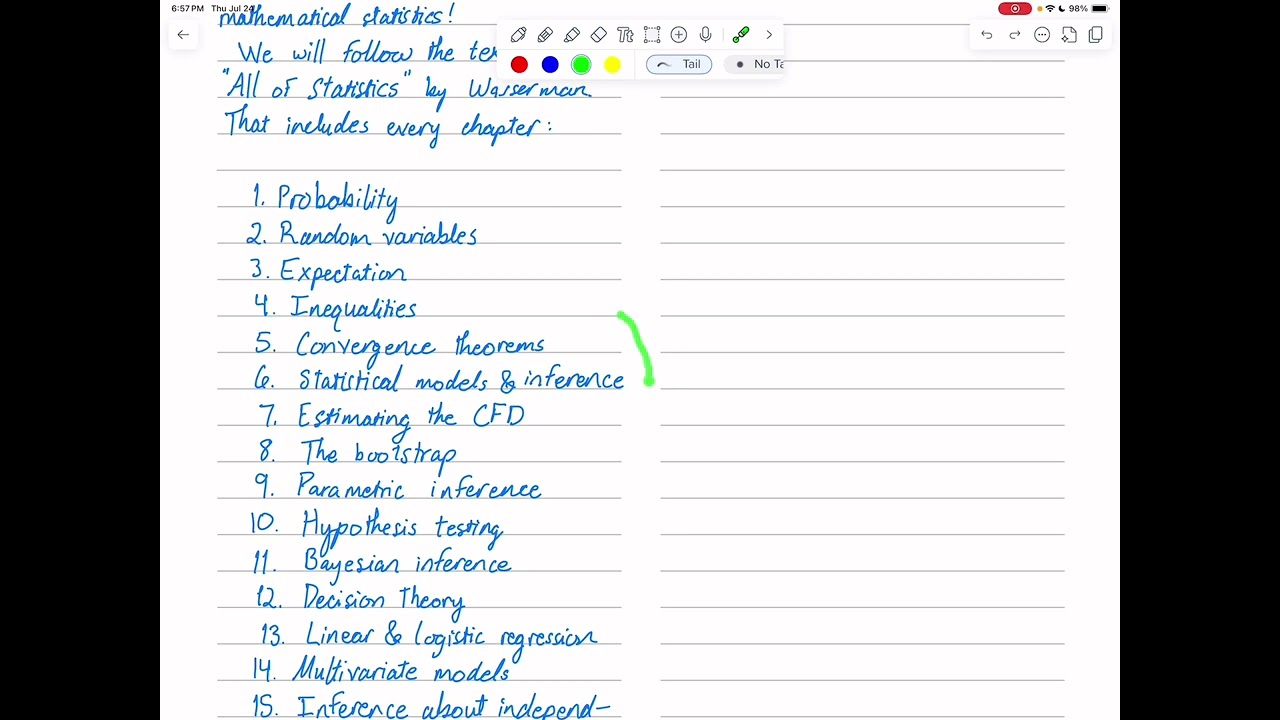 6:57 PM Thu Jul 24
98%
mathematical statistics!
We will follow the
Tail
No Ta
"All of Statistics" by Wasserman.
That includes every chapter:
1. Probability
2. Random variables
3. Expectation
4. Inequalities
5. Convergence theorems
6. Statistical models & inference
7. Estimating the CFD
8. The bootstrap
9. Parametric inference
10. Hypothesis testing
11. Bayesian inference
12. Decision Theory
13. Linear & logistic regression
14. Multivariate models
15. Inference about independ-